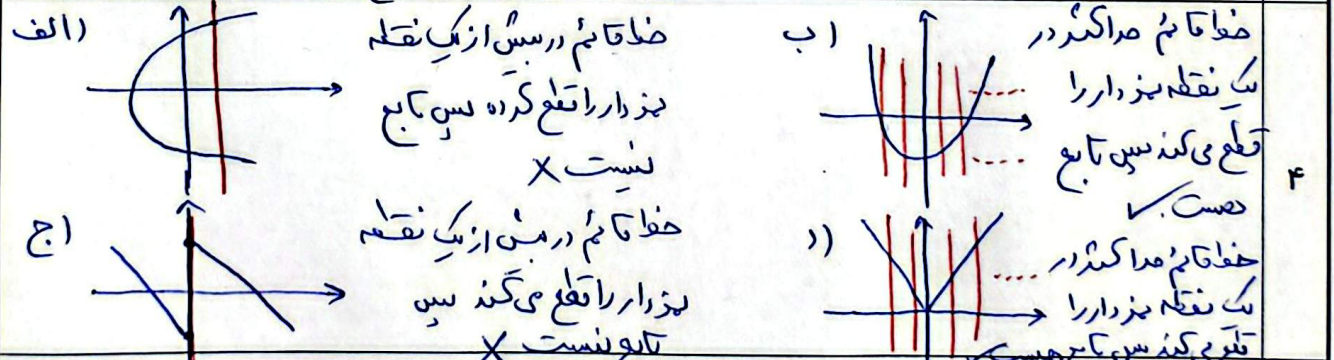 الف)
خط قائم در بیش از یک نقطه
نمودار را قطع کرده پس تابع
نیست ×
ب)
خط قائم حداکثر در
یک نقطه نمودار را
قطع می کند پس تابع
هست. ✓
ج)
خط قائم در بیش از یک نقطه
نمودار را قطع می کند پس
تابع نیست ×
د)
خط قائم حداکثر در
یک نقطه نمودار را
قطع می کند پس تابع هست ✓
۴